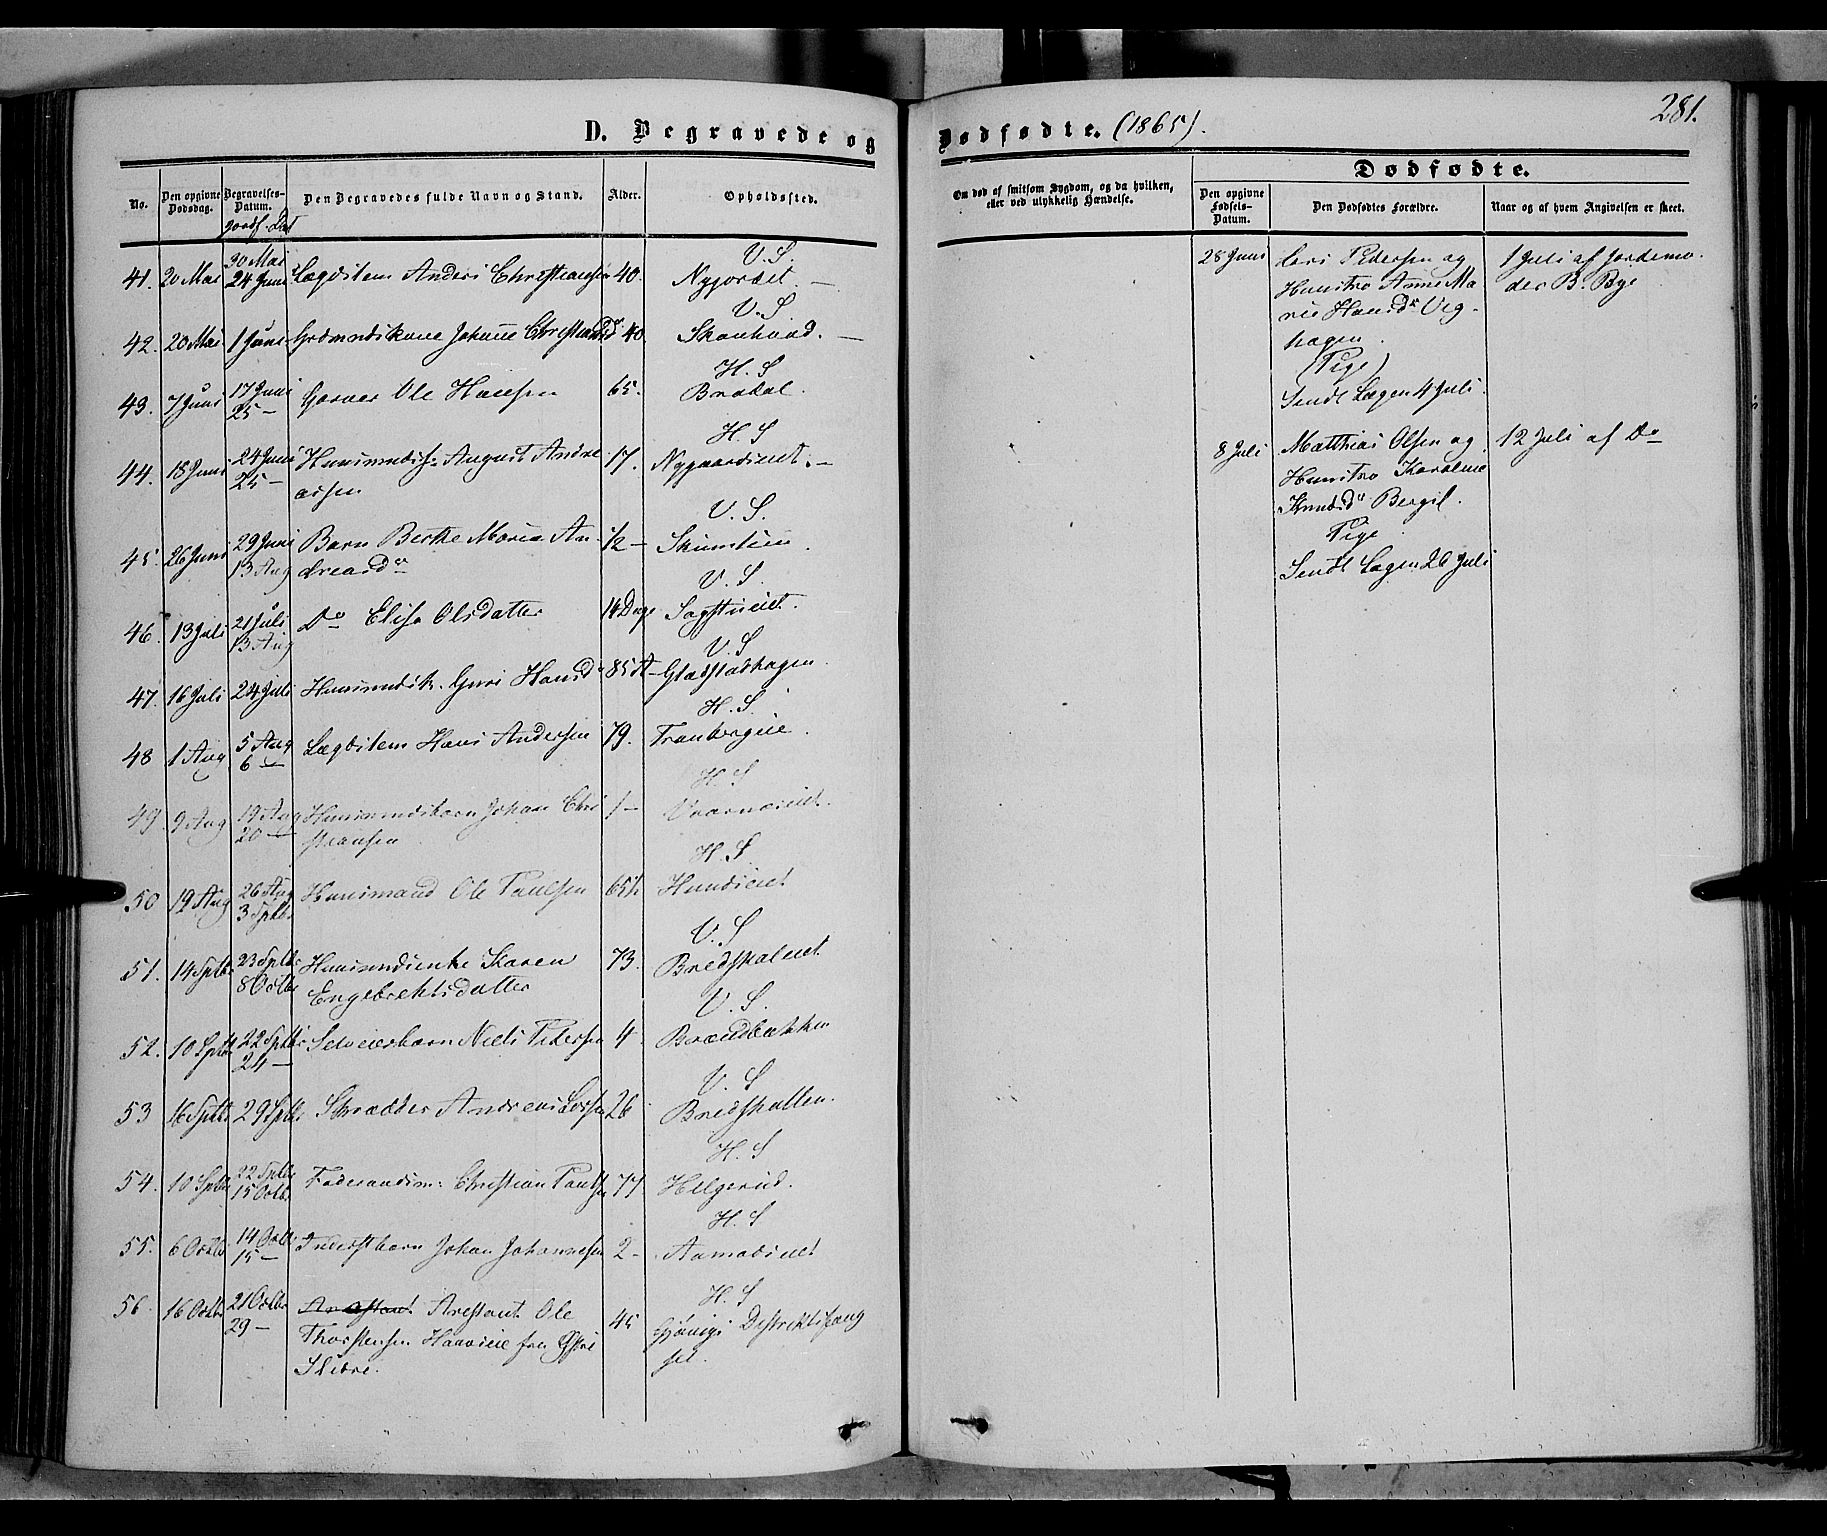 D. Begravede og
No.
Den opgivne Dødsdag.
Begravelses-Datum.
Jordf. Dat
Den Begravedes fulde Navn og Stand.
Alder.
Opholdssted.
30 Mai V. S.
41. 20 Mai 24 Juni Lægdslem Anders Christiansen 40. Nyjordet. —
V. S
42. 20 Mai 1 Juni Grdmndskone Johanne Christiansdr 40 Skonhovd. —
H. S
43. 7 Juni 17 Juni Ole Hansen 65. Bradal.
25 —
H. S
44. 18 Juni 24 Juni Huusmndss: August Andre 17. Nygaardseiet. —
25 — assen
V. S.
45. 26 Juni 29 Juni Barn Berthe Maria An 1/2 — Skumlien.
13 Aug dreasdr
V. S.
46. 13 Juli 21 Juli Do Elise Olsdatter 14 Dage Sagstueiet.
13 Aug
V. S
47. 16 Juli 24 Juli Huusmndsk. Guri Hansdr 85 A — Gladstadhagen.
H. S.
48 1 Aug 5 Aug Lægdslem Hans Andersen 79. Tranbergeie.
6 —
H. S
49. 9 Aug 19 Aug Huusmndsbarn Johan Chri 1 —
20 — stiansen
H. S
50 19 Aug 26 Aug Huusmand Ole Paulsen 65 1/2 Hundseiet
3 Sptbr
V. S
51. 14 Sptbr 23 Sptbr Huusmndsenke Karen 73. Bredskaleiet
8 Octbr Engebrektsdatter
V. S.
52. 10 Sptbr 22 Sptbr Selveierbarn Niels Pedersen 4 Brændbakken
24 —
V. S
53 16 Sptbr 29 Sptbr Skrædder Andreas Larsen 26 Bredskallen.
H. S
54. 10 Sptbr 22 Sptbr Føderaadsm: Christian Paulsen 77 Helgerud.
15 Octbr
H. S
55. 6 Octbr 14 Octbr Inderstbarn Johan Johannesen 2 — Aamodseiet
15 —
H. S
56. 16 Octbr 21 Octbr Arestant Arestant Ole 45 Gjøvigs Distriktsfæng
29 — Thorstensen Haavieie fra Østre sel.
Slidre.
Dødfødte. (1865).
281.
Om død af smitsom Sygdom, og da hvilken,
eller ved ulykkelig Hændelse.
Dødfødte.
Den opgivne Fødsels-Datum.
Den Dødfødtes Forældre.
Naar og af hvem Angivelsen er skeet.
28 Juni Lars Pedersen og 1 Juli af Jordemo
Hustro Anne Ma der B. Bye
rie Hansdr Veg
hagen.
(Pige)
Sendt Lægen 4 Juli.
8 Juli Matthias Olsen og 12 Juli af Do
Hustro Karoline
Knudsdr Bergst.
Pige
Sendt Lægen 26 Juli